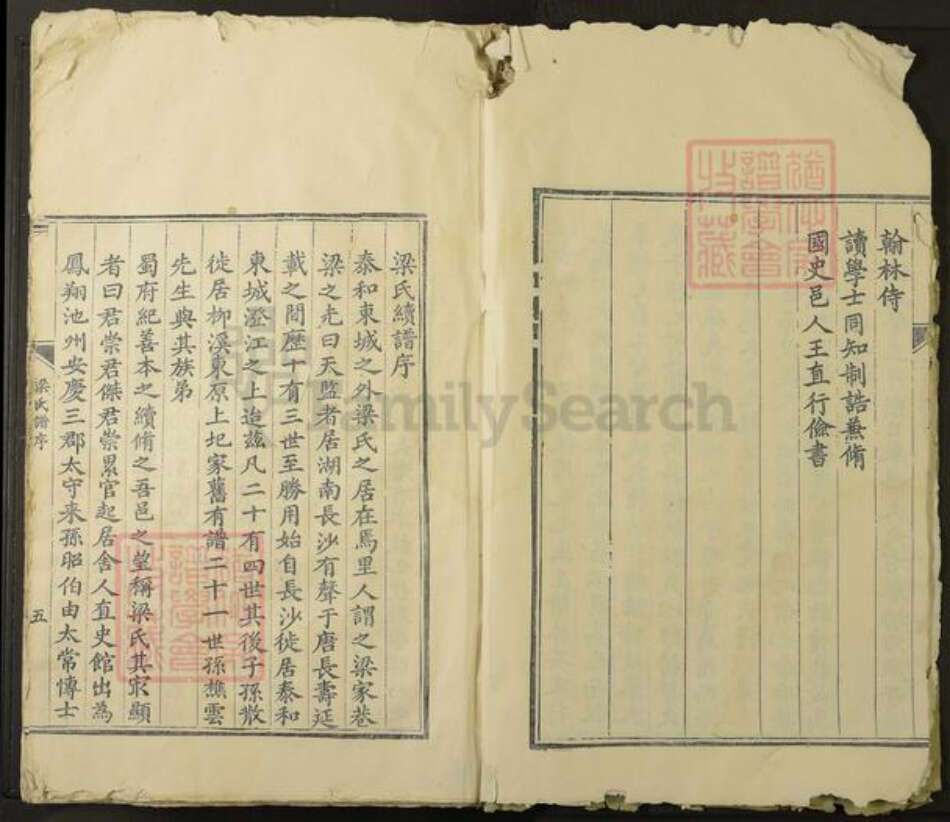 翰林侍
讀學士同知制誥兼脩
國史邑人王直行儉書
梁氏續譜序
泰和東城之外梁氏之居在焉里人謂之梁家巷
梁之先曰天監者居湖南長沙有聲于唐長壽延
載之間歷十有三世至勝用始自長沙徙居泰和
東城澄江之上迨茲凡二十有四世其後子孫散
徙居柳溪東原上圯家舊有譜二十一世孫樵雲
先生與其族弟
蜀府紀善本之續脩之吾邑之望稱梁氏其㝡顯
者曰君崇君傑君崇累官起居舍人直史館出為
鳳翔池州安慶三郡太守来孫昭伯由太常博士
梁氏譜序
五
FamilySearch